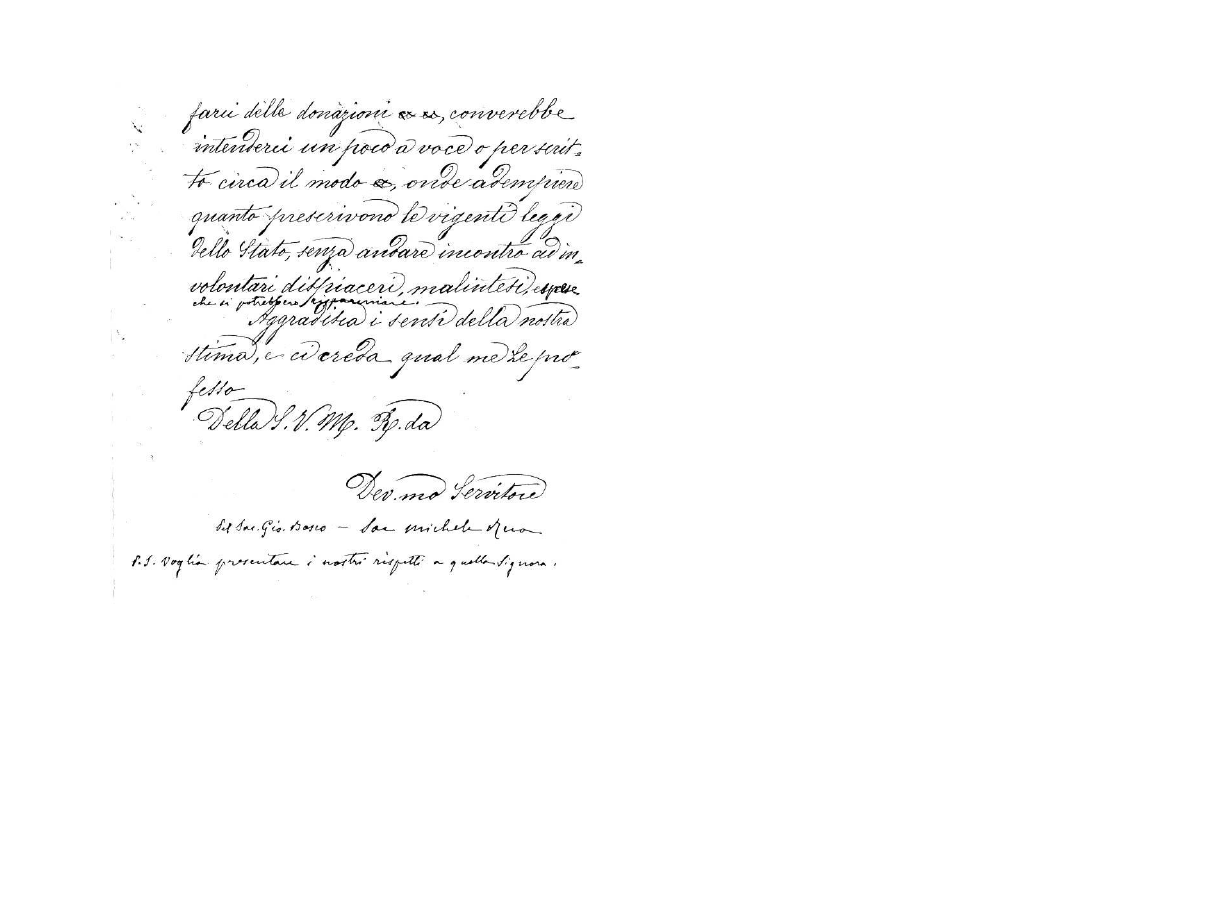 farci delle donazioni &c &c, converebbe
intenderci un poco a voce o per scrit-
to circa il modo &c, onde adempiere
quanto prescrivono le vigenti leggi
dello Stato, senza andare incontro ad in-
volontari dispiaceri, malintesi, e spese
che si potrebbero risparmiare.
Aggradisca i sensi della nostra
stima, e ci creda qual me Le pro-
fesso
Della S. V. M. R.da
Dev.mo Servitore
Pel Sac. Gio. Bosco - Sac Michele Rua
P.S. Voglia presentare i nostri rispetti a quella Signora.